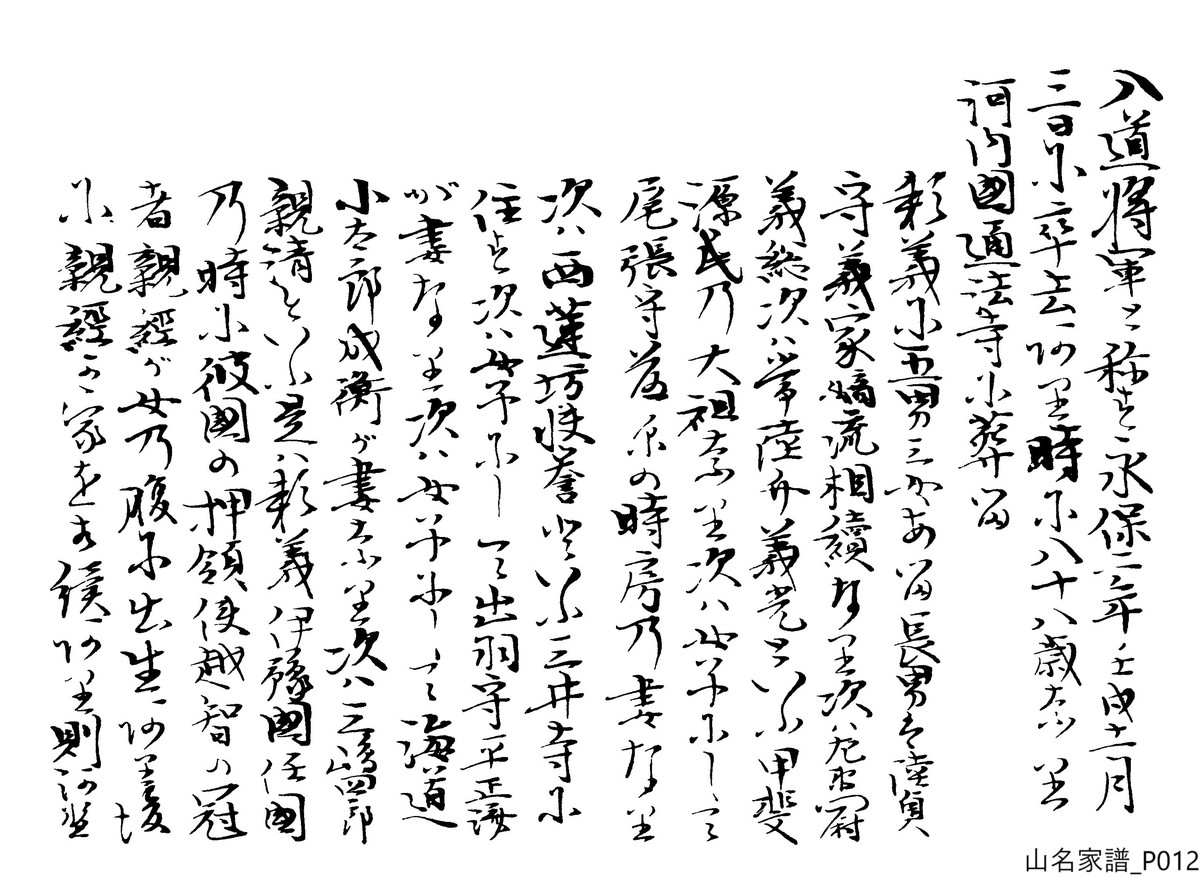 入道将軍と称す永保二年壬戌十一月
三日に卒去ありき時に八十八歳なり
河内國通法寺に葬る
頼義に五男三女ある長男は陸奥
守義家嫡流相續なり次八左衛門尉
義綱次ハ常陸介義光といふ甲斐
源氏乃大祖なり次ハ女子にして
尾張守藤原の時房乃妻なり
次ハ西蓮坊快誉といふ三井寺に
住す次ハ女子にして出羽守平正済
が妻なり次ハ女子にして海道
小太郎成衡が妻なり次ハ三嶋四郎
親清といふ是ハ頼義伊豫國任國
乃時に彼國の押領使越智の冠
者親經が女乃腹に出生ありき
に親經か家を相續あり則河野
山名家譜_P012